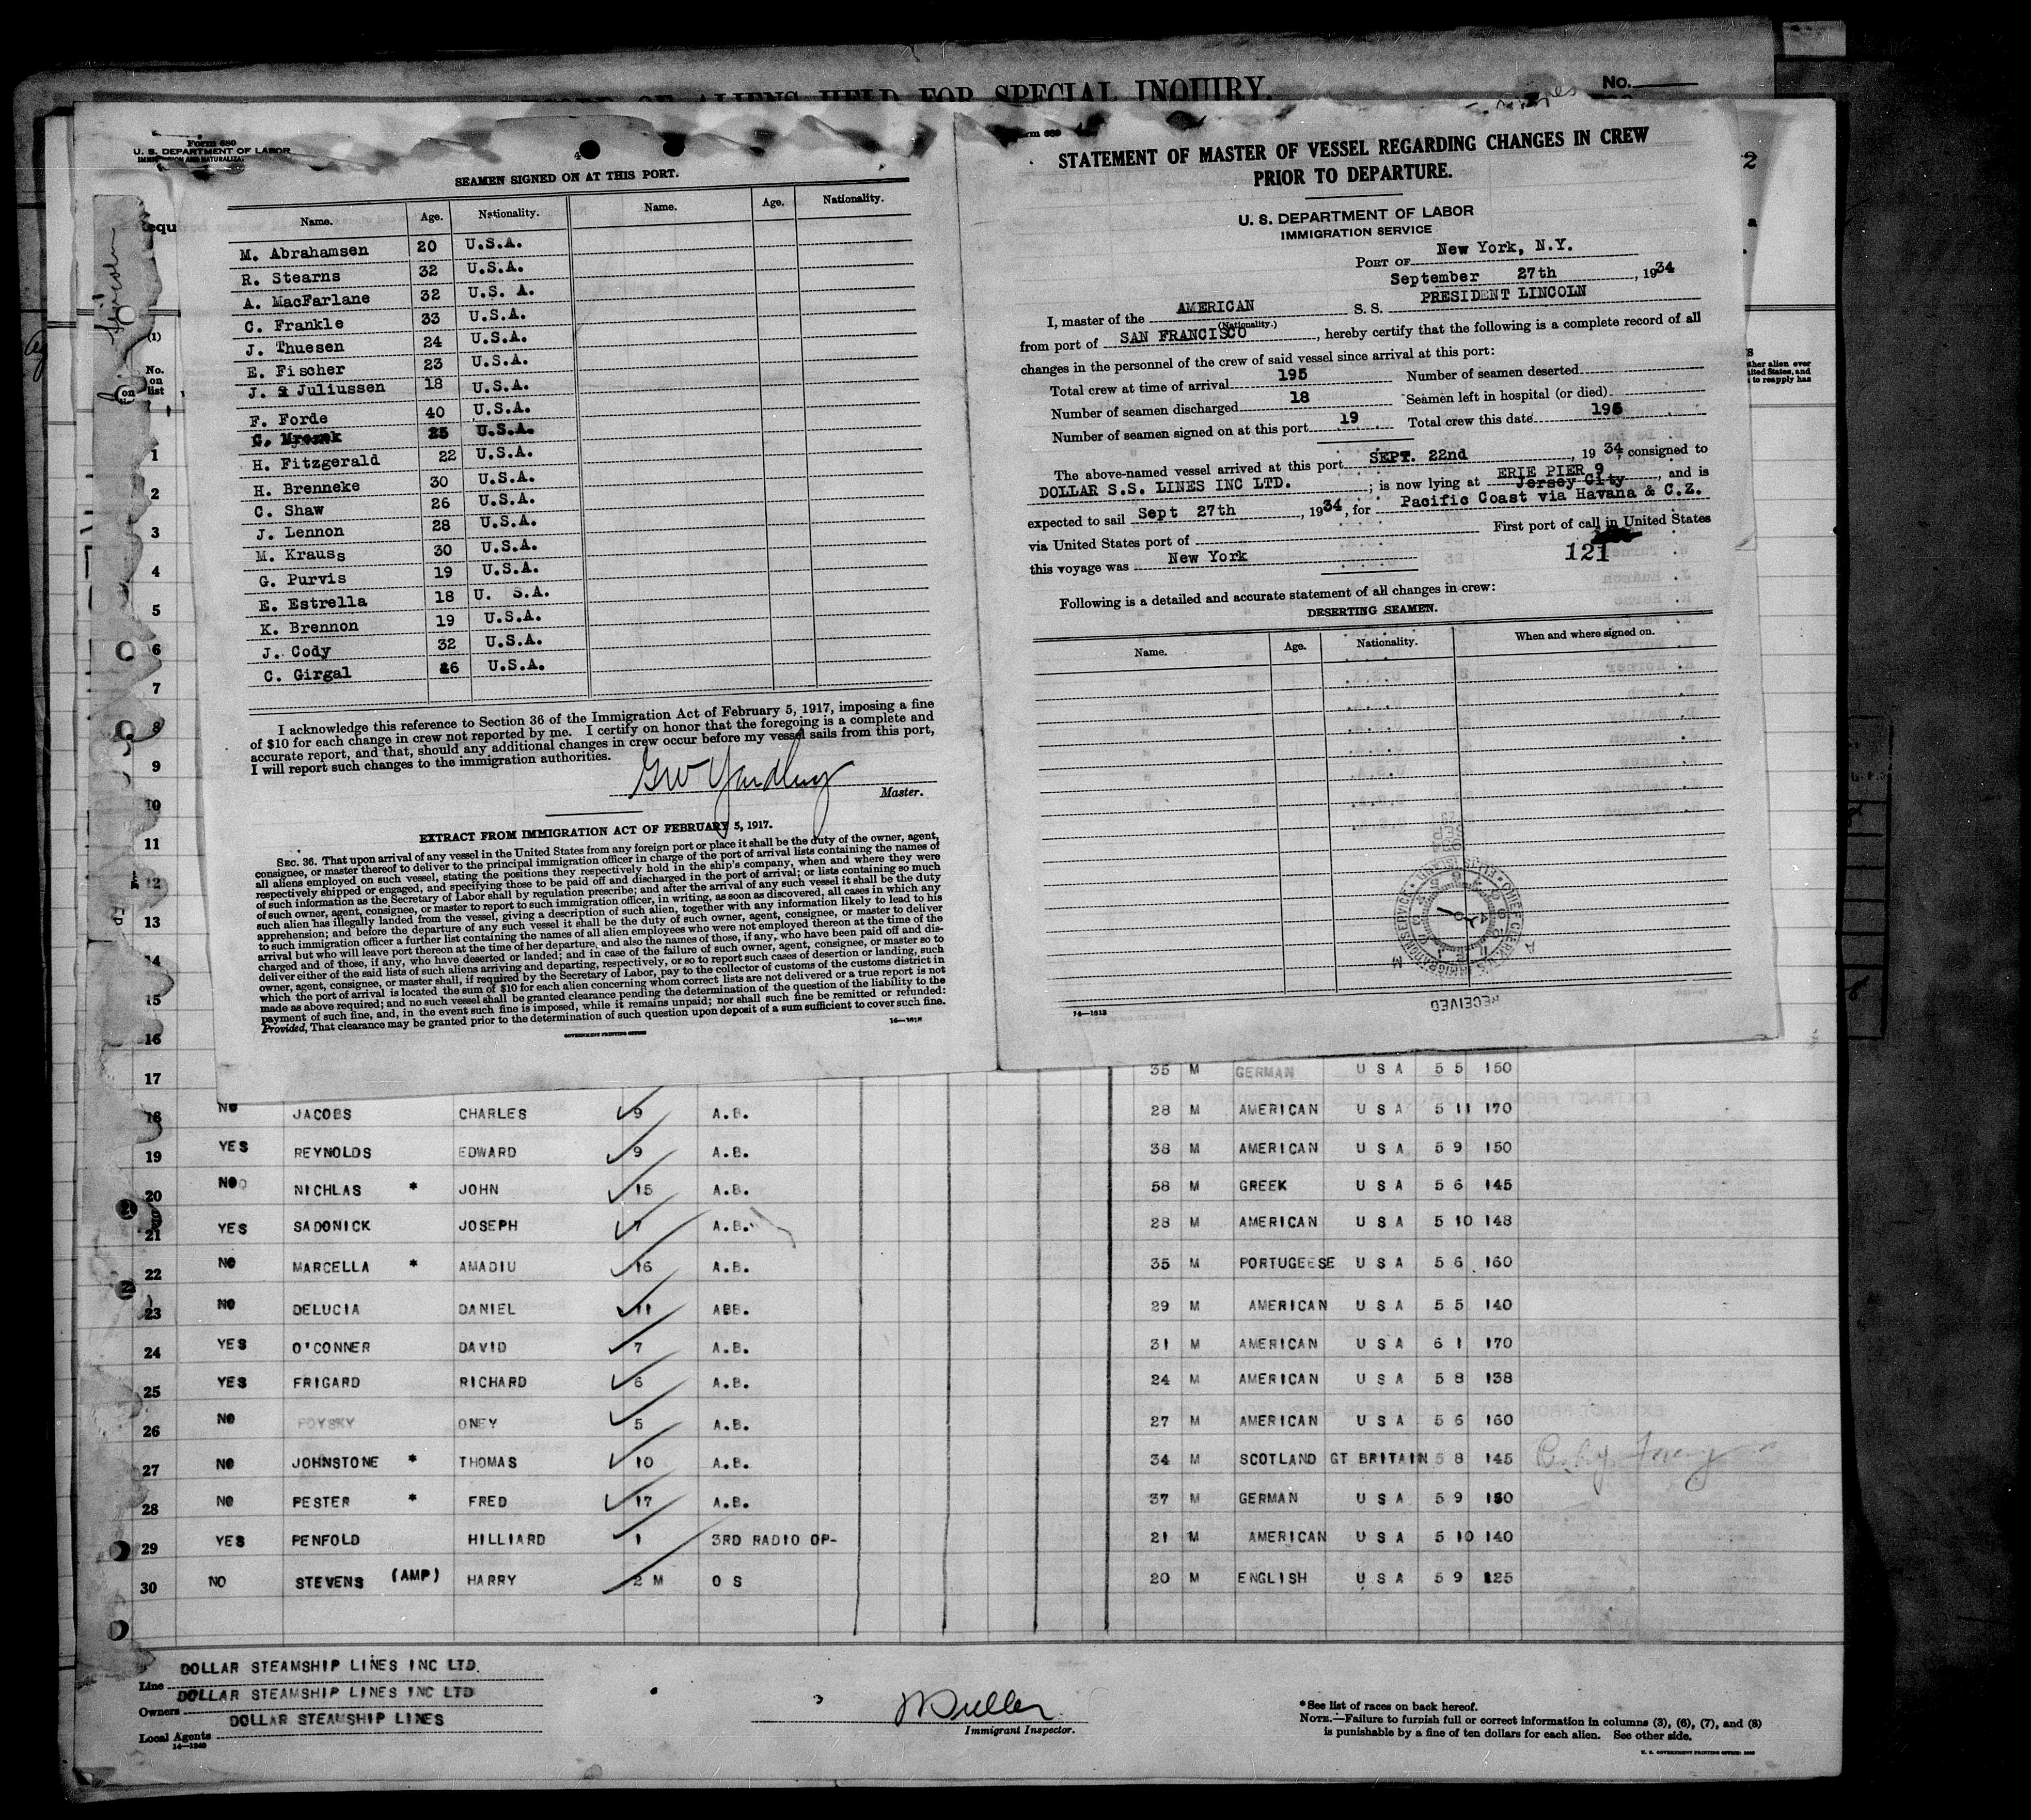 RECORD OF ALIENS HELD FOR SPECIAL INQUIRY.
No.
Form 680
U. S. DEPARTMENT OF LABOR
SEAMEN SIGNED ON AT THIS PORT.
Name. Age. Nationality. Name. Age. Nationality.
M. Abrahamsen 20 U.S.A.
R. Stearns 32 U.S.A.
A. MacFarlane 32 U.S. A.
C. Frankle 33 U.S.A.
J. Thuesen 24 U.S.A.
E. Fischer 23 U.S.A.
J. Juliussen 18 U.S.A.
F. Forde 40 U.S.A.
C. Mrozek 25 U.S.A.
H. Fitzgerald 22 U.S.A.
H. Brenneke 30 U.S.A.
C. Shaw 26 U.S.A.
J. Lennon 28 U.S.A.
M. Krauss 30 U.S.A.
G. Purvis 19 U.S.A.
E. Estrella 18 U. S.A.
K. Brennon 19 U.S.A.
J. Cody 32 U.S.A.
C. Girgal 26 U.S.A.
I acknowledge this reference to Section 36 of the Immigration Act of February 5, 1917, imposing a fine
of $10 for each change in crew not reported by me. I certify on honor that the foregoing is a complete and
accurate report, and that, should any additional changes in crew occur before my vessel sails from this port,
I will report such changes to the immigration authorities.
GW Yardley
Master.
EXTRACT FROM IMMIGRATION ACT OF FEBRUARY 5, 1917.
SEC. 36. That upon arrival of any vessel in the United States from any foreign port or place it shall be the duty of the owner, agent,
consignee, or master thereof to deliver to the principal immigration officer in charge of the port of arrival lists containing the names of
all aliens employed on such vessel, stating the positions they respectively hold in the ship's company, when and where they were
respectively shipped or engaged, and specifying those to be paid off and discharged in the port of arrival; or lists containing so much
of such information as the Secretary of Labor shall by regulation prescribe; and after the arrival of any such vessel it shall be the duty
of such owner, agent, consignee, or master to report to such immigration officer, in writing, as soon as discovered, all cases in which any
such alien has illegally landed from the vessel, giving a description of such alien, together with any information likely to lead to his
apprehension; and before the departure of any such vessel it shall be the duty of such owner, agent, consignee, or master to deliver
to such immigration officer a further list containing the names of all alien employees who were not employed thereon at the time of the
arrival but who will leave port thereon at the time of her departure, and also the names of those, if any, who have been paid off and dis-
charged and of those, if any, who have deserted or landed; and in case of the failure of such owner, agent, consignee, or master so to
deliver either of the said lists of such aliens arriving and departing, respectively, or so to report such cases of desertion or landing, such
owner, agent, consignee, or master shall, if required by the Secretary of Labor, pay to the collector of customs of the customs district in
which the port of arrival is located the sum of $10 for each alien concerning whom correct lists are not delivered or a true report is not
made as above required; and no such vessel shall be granted clearance pending the determination of the question of the liability to the
payment of such fine, and, in the event such fine is imposed, while it remains unpaid; nor shall such fine be remitted or refunded:
Provided, That clearance may be granted prior to the determination of such question upon deposit of a sum sufficient to cover such fine.
GOVERNMENT PRINTING OFFICE
14—1613
STATEMENT OF MASTER OF VESSEL REGARDING CHANGES IN CREW
PRIOR TO DEPARTURE.
U. S. DEPARTMENT OF LABOR
IMMIGRATION SERVICE
PORT OF New York, N.Y.
September 27th, 1934
I, master of the AMERICAN S. S. PRESIDENT LINCOLN
(Nationality.)
from port of SAN FRANCISCO, hereby certify that the following is a complete record of all
changes in the personnel of the crew of said vessel since arrival at this port:
Total crew at time of arrival 195 Number of seamen deserted
Number of seamen discharged 18 Seamen left in hospital (or died)
Number of seamen signed on at this port 19 Total crew this date 196
The above-named vessel arrived at this port SEPT. 22nd, 1934, consigned to
DOLLAR S.S. LINES INC LTD.; is now lying at ERIE PIER 9 Jersey City, and is
expected to sail Sept 27th, 1934, for Pacific Coast via Havana & C.Z.
via United States port of First port of call in United States
this voyage was New York 121
Following is a detailed and accurate statement of all changes in crew:
DESERTING SEAMEN.
Name. Age. Nationality. When and where signed on.
RECEIVED
14—1613
No. on list
1
2
3
4
5
6
7
8
9
10
11
12
13
14
15
16
17 35 M GERMAN U S A 5 5 150
18 NO JACOBS CHARLES 9 A.B. 28 M AMERICAN U S A 5 11 170
19 YES REYNOLDS EDWARD 9 A.B. 38 M AMERICAN U S A 5 9 150
20 NO NICHLAS * JOHN 15 A.B. 58 M GREEK U S A 5 6 145
21 YES SADONICK JOSEPH 7 A.B. 28 M AMERICAN U S A 5 10 148
22 NO MARCELLA * AMADIU 16 A.B. 35 M PORTUGEESE U S A 5 6 160
23 NO DELUCIA DANIEL 11 ABB. 29 M AMERICAN U S A 5 5 140
24 YES O'CONNER DAVID 7 A.B. 31 M AMERICAN U S A 6 1 170
25 YES FRIGARD RICHARD 6 A.B. 24 M AMERICAN U S A 5 8 138
26 NO POYSKY ONEY 5 A.B. 27 M AMERICAN U S A 5 6 160
27 NO JOHNSTONE * THOMAS 10 A.B. 34 M SCOTLAND GT BRITAIN 5 8 145
28 NO PESTER * FRED 17 A.B. 37 M GERMAN U S A 5 9 150
29 YES PENFOLD HILLIARD 1 3RD RADIO OP- 21 M AMERICAN U S A 5 10 140
30 NO STEVENS (AMP) HARRY 2 M O S 20 M ENGLISH U S A 5 9 125
Line DOLLAR STEAMSHIP LINES INC LTD.
Owners DOLLAR STEAMSHIP LINES INC LTD
Local Agents DOLLAR STEAMSHIP LINES
14—1240
Immigrant Inspector.
*See list of races on back hereof.
NOTE.—Failure to furnish full or correct information in columns (3), (6), (7), and (8)
is punishable by a fine of ten dollars for each alien. See other side.
U. S. GOVERNMENT PRINTING OFFICE